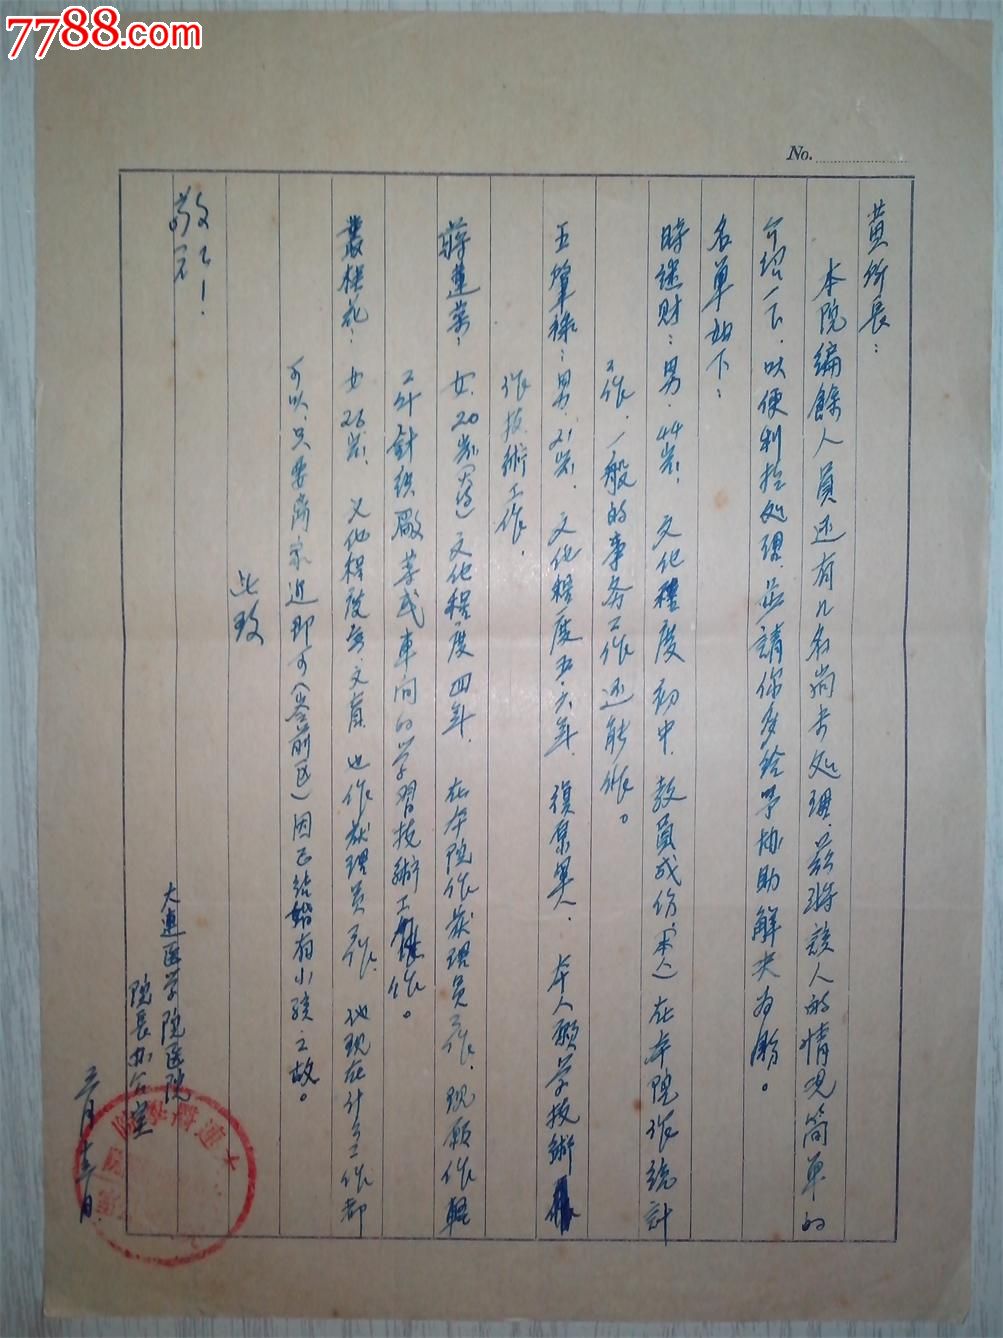 7788.com
No.
黄所長：
本院編餘人員还有几名尚未处理．兹将該人的情况简单的
介绍一下．以便利於处理．並請你多给予协助解决为盼。
名單如下：
財：男．44岁．文化程度初中．教員成份（本人）在本院作統計
工作．一般的事务工作还能作。
王肇 ：男．21岁．文化程度五．六年．復原軍人．本人願学技術
作技術工作．
蔣蓮 ：女．20岁 文化程度四年．在本院作 理員工作．现願作輕
工針织廠 或車间的学習技術工作。
叢桂花：女26岁．文化程度 文盲．也作 理員工作．他现在什么工作都
可以．只要 家近即可（岭前区）因已结婚有小孩之故。
此致
敬礼！
大連医学院医院
院長办公室
三月十 日
大連醫學院